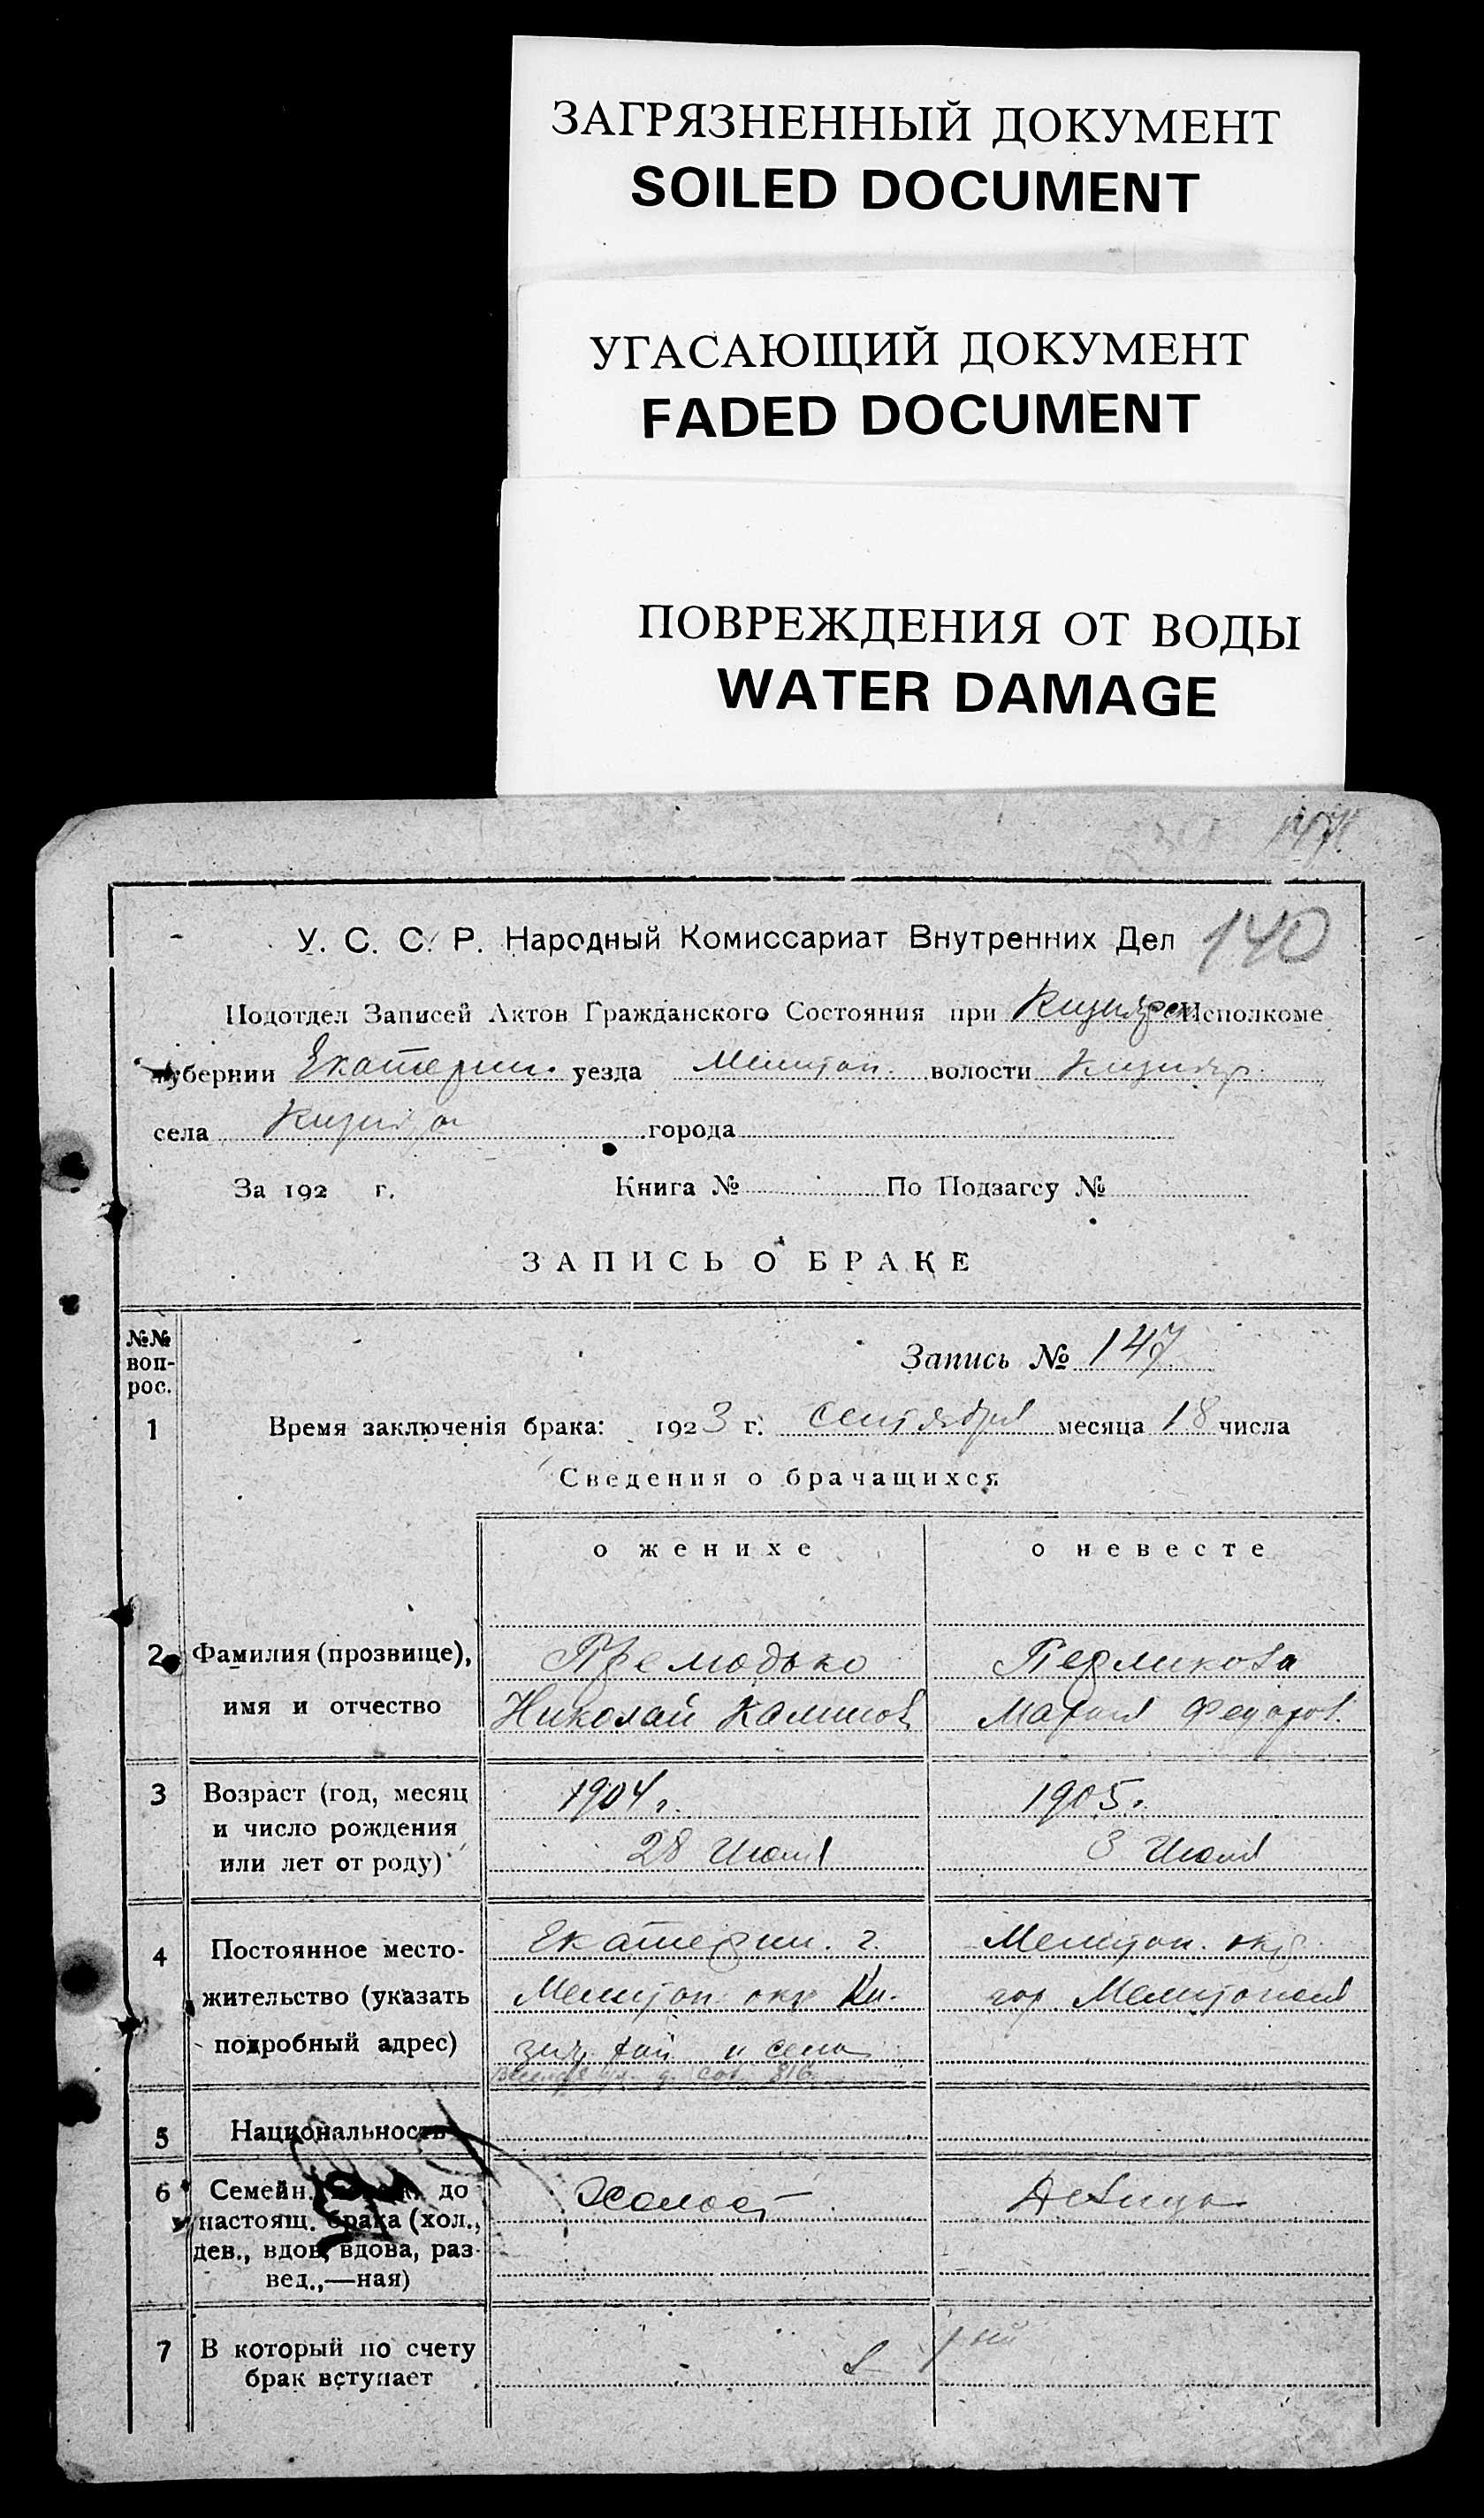 ЗАГРЯЗНЕННЫЙ ДОКУМЕНТ
SOILED DOCUMENT
УГАСАЮЩИЙ ДОКУМЕНТ
FADED DOCUMENT
ПОВРЕЖДЕНИЯ ОТ ВОДЫ
WATER DAMAGE
147
У. С. С. Р. Народный Комиссариат Внутренних Дел 140
Подотдел Записей Актов Гражданского Состояния при Исполкоме
губернии Екатерин. уезда Мелитоп. волости Кизияр.
села Кизияр города
За 192 г. Книга № По Подзагсу №
ЗАПИСЬ О БРАКЕ
№№ воп- рос.
Запись № 147
1 Время заключенія брака: 1923 г. Сентября месяца 18 числа
Сведения о брачащихся
о женихе о невесте
2 Фамилия (прозвище), Премодько Перликова
имя и отчество Николай Калинов Мария Федоров.
3 Возраст (год, месяц 1904 г. 1905 г.
и число рождения 28 Июля 3 Июля
или лет от роду)
4 Постоянное место- Екатерин. г. Мелитоп. окр.
жительство (указать Мелитоп. окр. Ки- гор. Мелитополя
подробный адрес) зияр. рай. и села
5 Национальность
6 Семейн. до Холост Девица
настоящ. брака (хол.,
дев., вдов, вдова, раз-
вед.,—ная)
7 В который по счету 1 ый
брак вступает